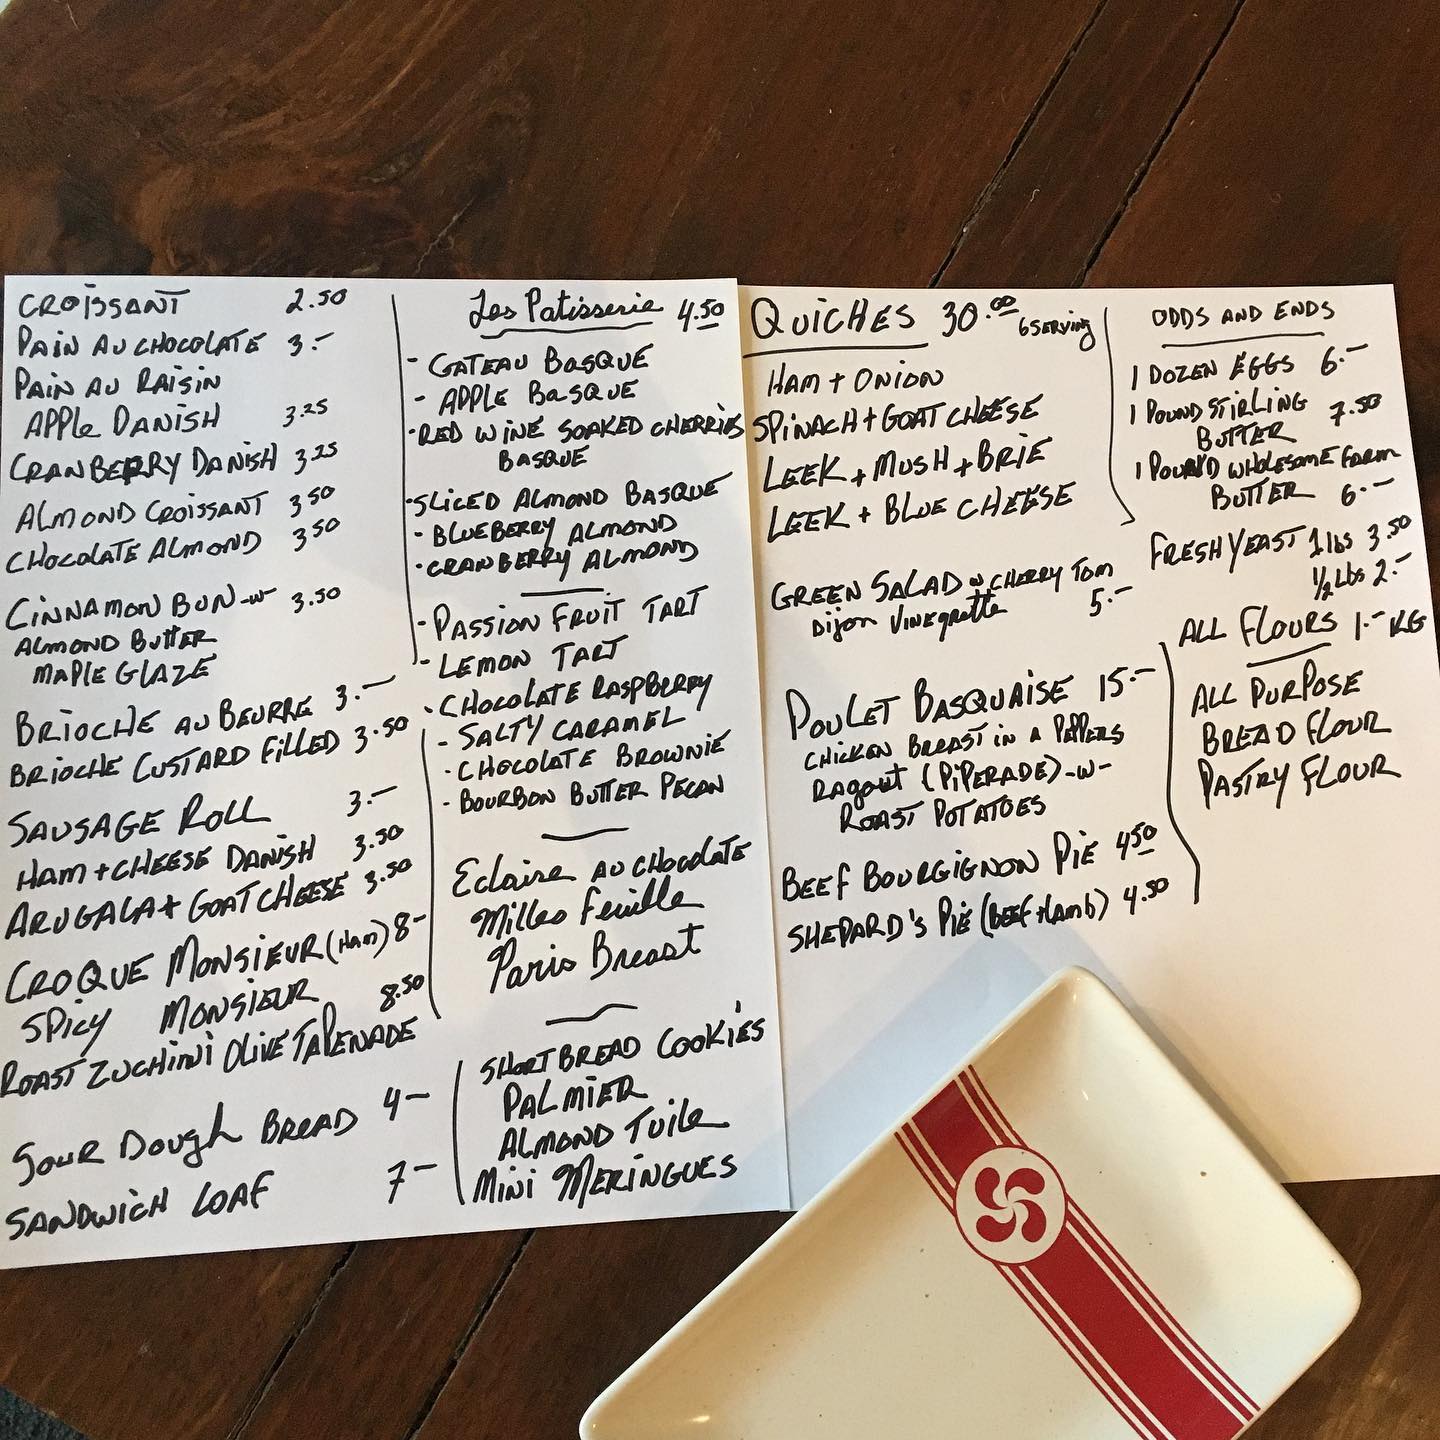 CROISSANT 2.50
PAIN AU CHOCOLATE 3.-
PAIN AU RAISIN
APPLE DANISH 3.25
CRANBERRY DANISH 3.25
ALMOND CROISSANT 3.50
CHOCOLATE ALMOND 3.50
CINNAMON BUN -w- 3.50
ALMOND BUTTER
MAPLE GLAZE
BRIOCHE AU BEURRE 3.-
BRIOCHE CUSTARD FILLED 3.50
SAUSAGE ROLL 3.-
HAM + CHEESE DANISH 3.50
ARUGALA + GOAT CHEESE 3.50
CROQUE MONSIEUR (HAM) 8-
SPICY MONSIEUR 8.50
ROAST ZUCHINI OLIVE TAPENADE
SOUR DOUGH BREAD 4-
SANDWICH LOAF 7-
Les Patisserie 4.50
- GATEAU BASQUE
- APPLE BASQUE
- RED WINE SOAKED CHERRIES
BASQUE
- SLICED ALMOND BASQUE
- BLUEBERRY ALMOND
- CRANBERRY ALMOND
- PASSION FRUIT TART
- LEMON TART
- CHOCOLATE RASPBERRY
- SALTY CARAMEL
- CHOCOLATE BROWNIE
- BOURBON BUTTER PECAN
Eclaire AU CHOCOLATE
Milles Feuille
Paris Breast
SHORTBREAD COOKIES
PALMIER
ALMOND TUILE
MINI MERINGUES
QUICHES 30.00 6 SERVING
HAM + ONION
SPINACH + GOAT CHEESE
LEEK + MUSH + BRIE
LEEK + BLUE CHEESE
GREEN SALAD w CHERRY TOM
Dijon Vinegrette 5.-
POULET BASQUAISE 15.-
CHICKEN BREAST IN A PEPPERS
RAGOUT (PIPERADE) -w-
ROAST POTATOES
BEEF BOURGIGNON PIE 4.50
SHEPARD'S PIE (BEEF + LAMB) 4.50
ODDS AND ENDS
1 DOZEN EGGS 6.-
1 POUND STIRLING 7.50
BUTTER
1 POUND WHOLESOME FARM
BUTTER 6.-
FRESH YEAST 1 lbs 3.50
1/2 Lbs 2.-
ALL FLOURS 1.- KG
ALL PURPOSE
BREAD FLOUR
PASTRY FLOUR